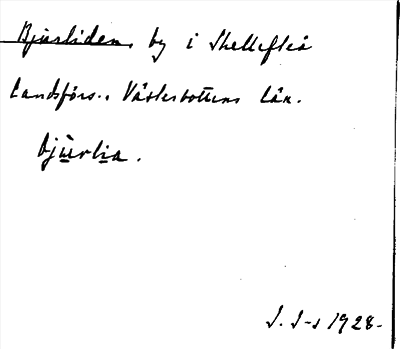 Bjurliden, by i Skellefteå
landsförs., Västerbottens län.
bju̲̇rli̲a.
J. J-s 1928.